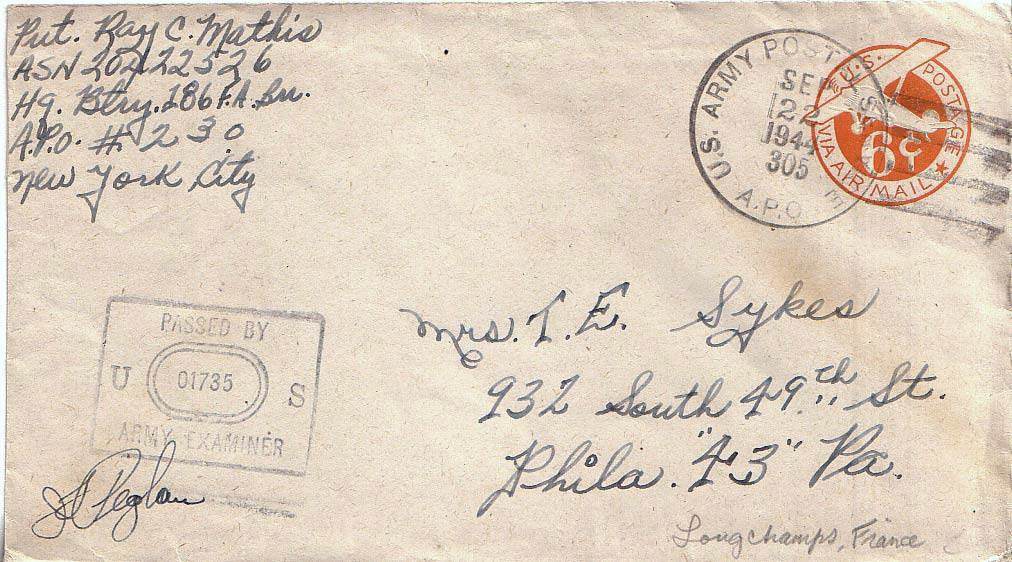 Pvt. Ray C. Mathis
ASN 20422526
Hq. Btry. 186 F.A. Bn.
A.P.O. # 230
New York City
U.S. ARMY POSTAL SERVICE
SEP
22
1944
305
A.P.O.
U.S. POSTAGE
6¢
VIA AIR MAIL
PASSED BY
U 01735 S
ARMY EXAMINER
Mrs. T. E. Sykes
932 South 49th St.
Phila. "43" Pa.
Longchamps, France